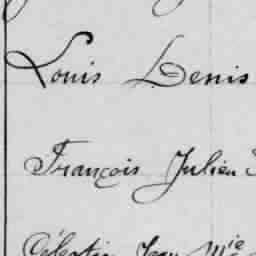 Louis Denis
François Julien
Célestin Jean Mie